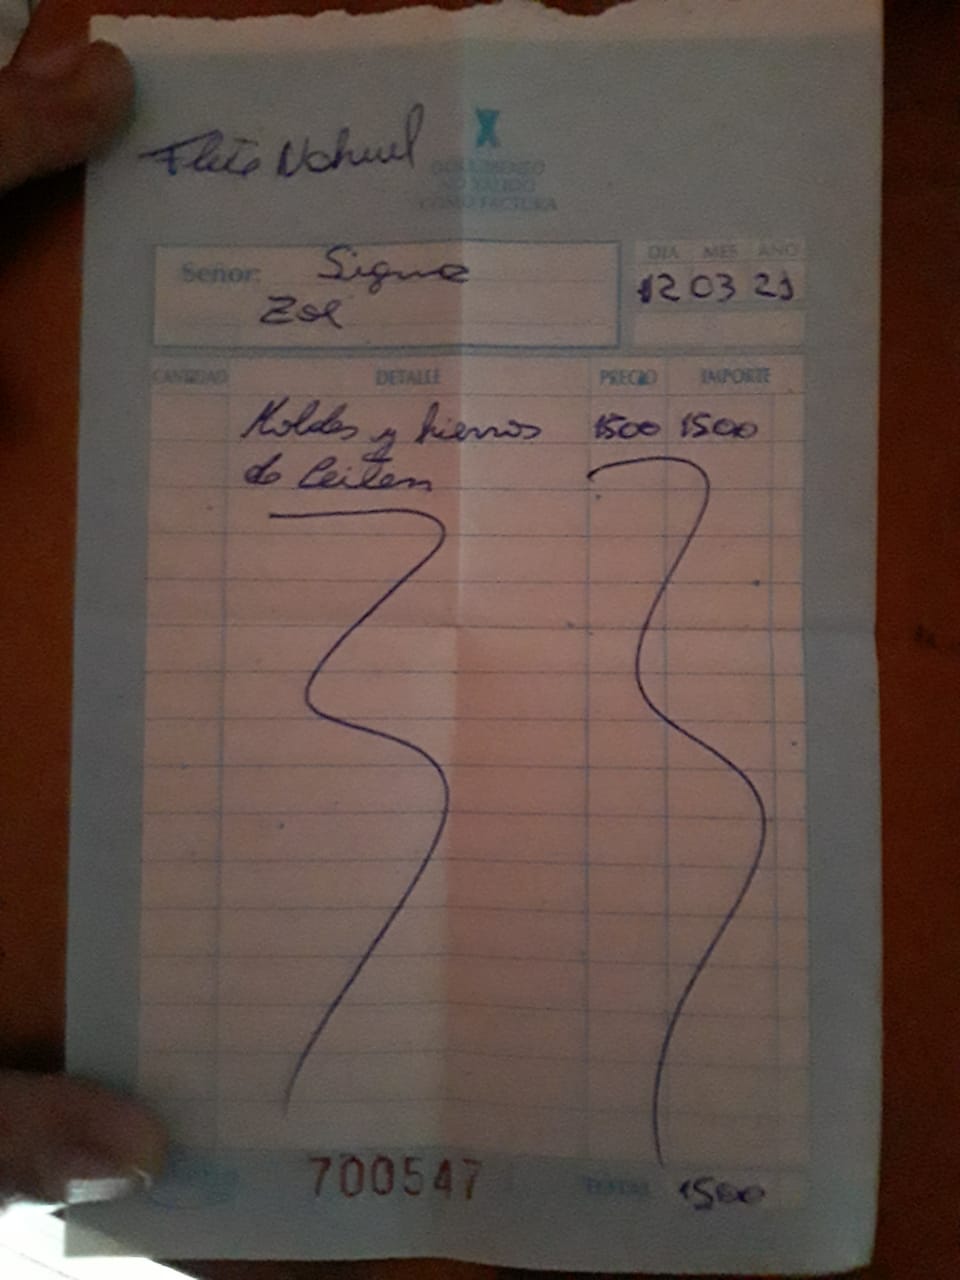 Flete Nahuel
X
DOCUMENTO
NO VALIDO
COMO FACTURA
Señor: Sigma
Zoe
DIA MES AÑO
12 03 21
CANTIDAD DETALLE PRECIO IMPORTE
Moldes y hierros 1500 1500
de
700547 TOTAL 1500